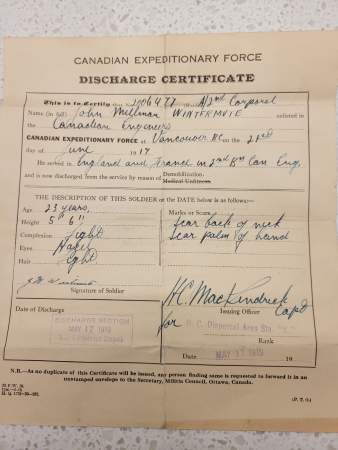 CANADIAN EXPEDITIONARY FORCE
DISCHARGE CERTIFICATE
This is to Certify that No. 2006477 (Rank) A/2nd Corporal
Name (in full) John Millman WINTERMUTE enlisted in
the Canadian Engineers
CANADIAN EXPEDITIONARY FORCE at Vancouver BC on the 21st
day of June 1917
He served in England and France in 2nd Bn Can Eng.
and is now discharged from the service by reason of Demobilization.
Medical Unfitness.
THE DESCRIPTION OF THIS SOLDIER on the DATE below is as follows:—
Age 23 years,
Height 5' 6"
Complexion Light
Eyes Hazel
Hair Lght
Signature of Soldier
Marks or Scars
Scar back of neck
Scar palm of hand
H.C. MacKendrick Capt
Issuing Officer
for B.C. Dispersal Area Sta.
Rank
Date of Discharge
DISCHARGE SECTION
MAY 17 1919
Date MAY 17 1919 19
N.B.—As no duplicate of this Certificate will be issued, any person finding same is requested to forward it in an
unstamped envelope to the Secretary, Militia Council, Ottawa, Canada.
(P. T. O.)